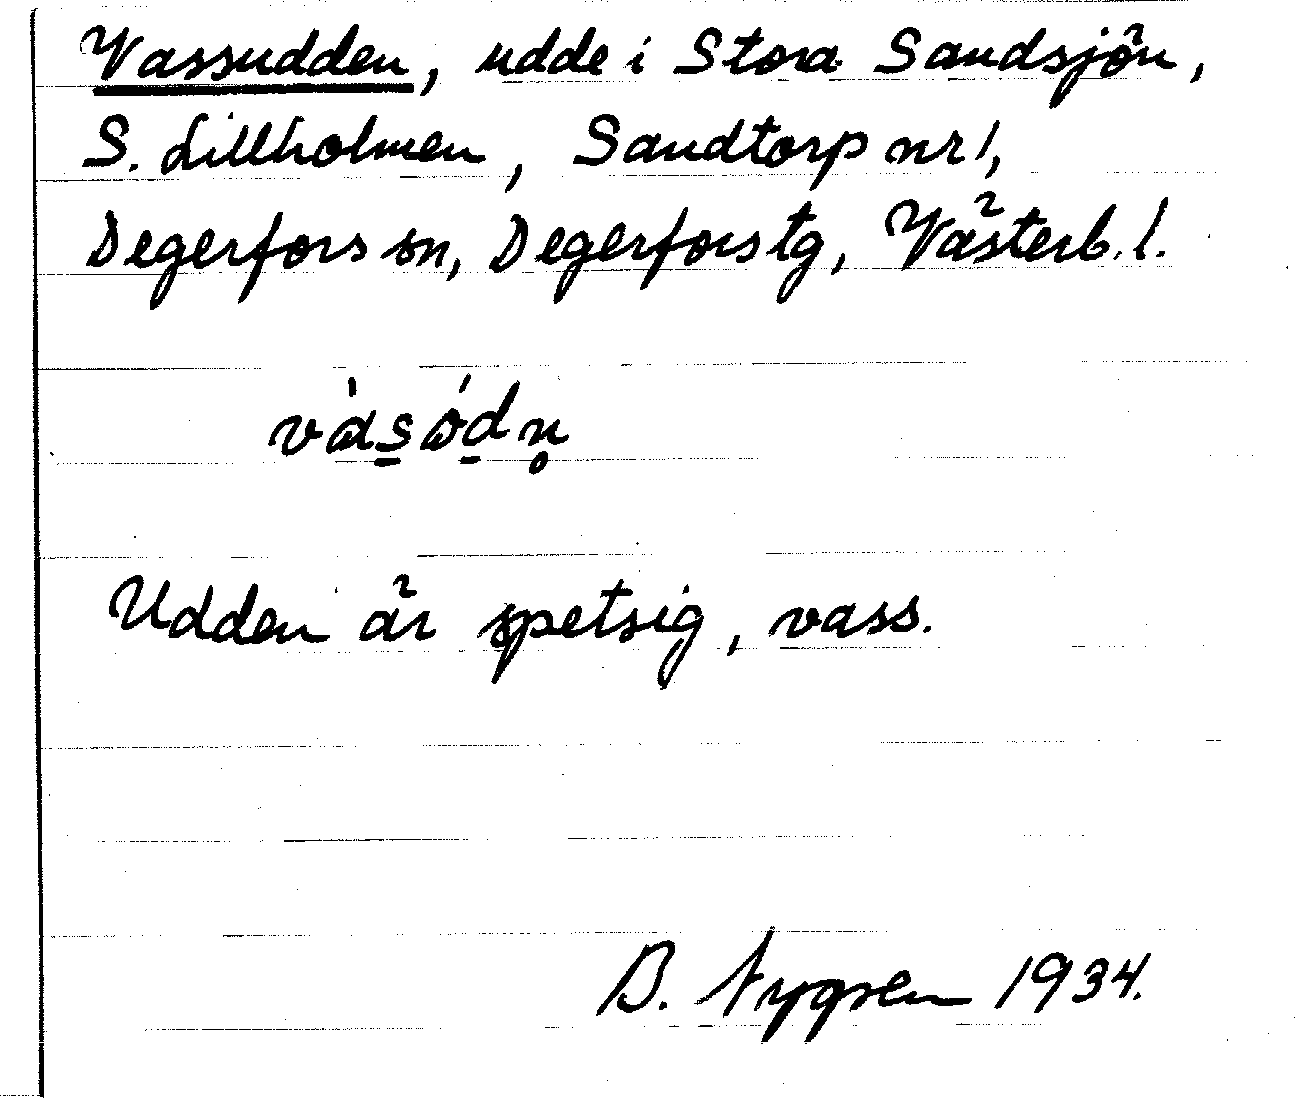 Vassudden, udde i Stora Sandsjön,
S. Lillholmen, Sandtorp nr 1,
Degerfors sn, Degerfors tg, Västerb. l.
vàs̲ód̲n̥
Udden är spetsig, vass.
B. Nygren 1934.